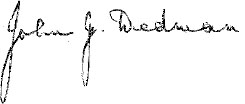 John J. Dedman